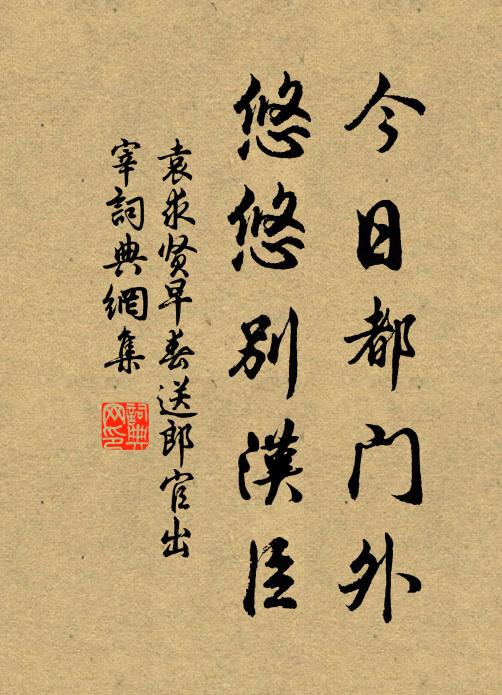 今日都门外
悠悠别漢臣
袁求贤早春送郎官出
宰詞典網集
詞典
网印